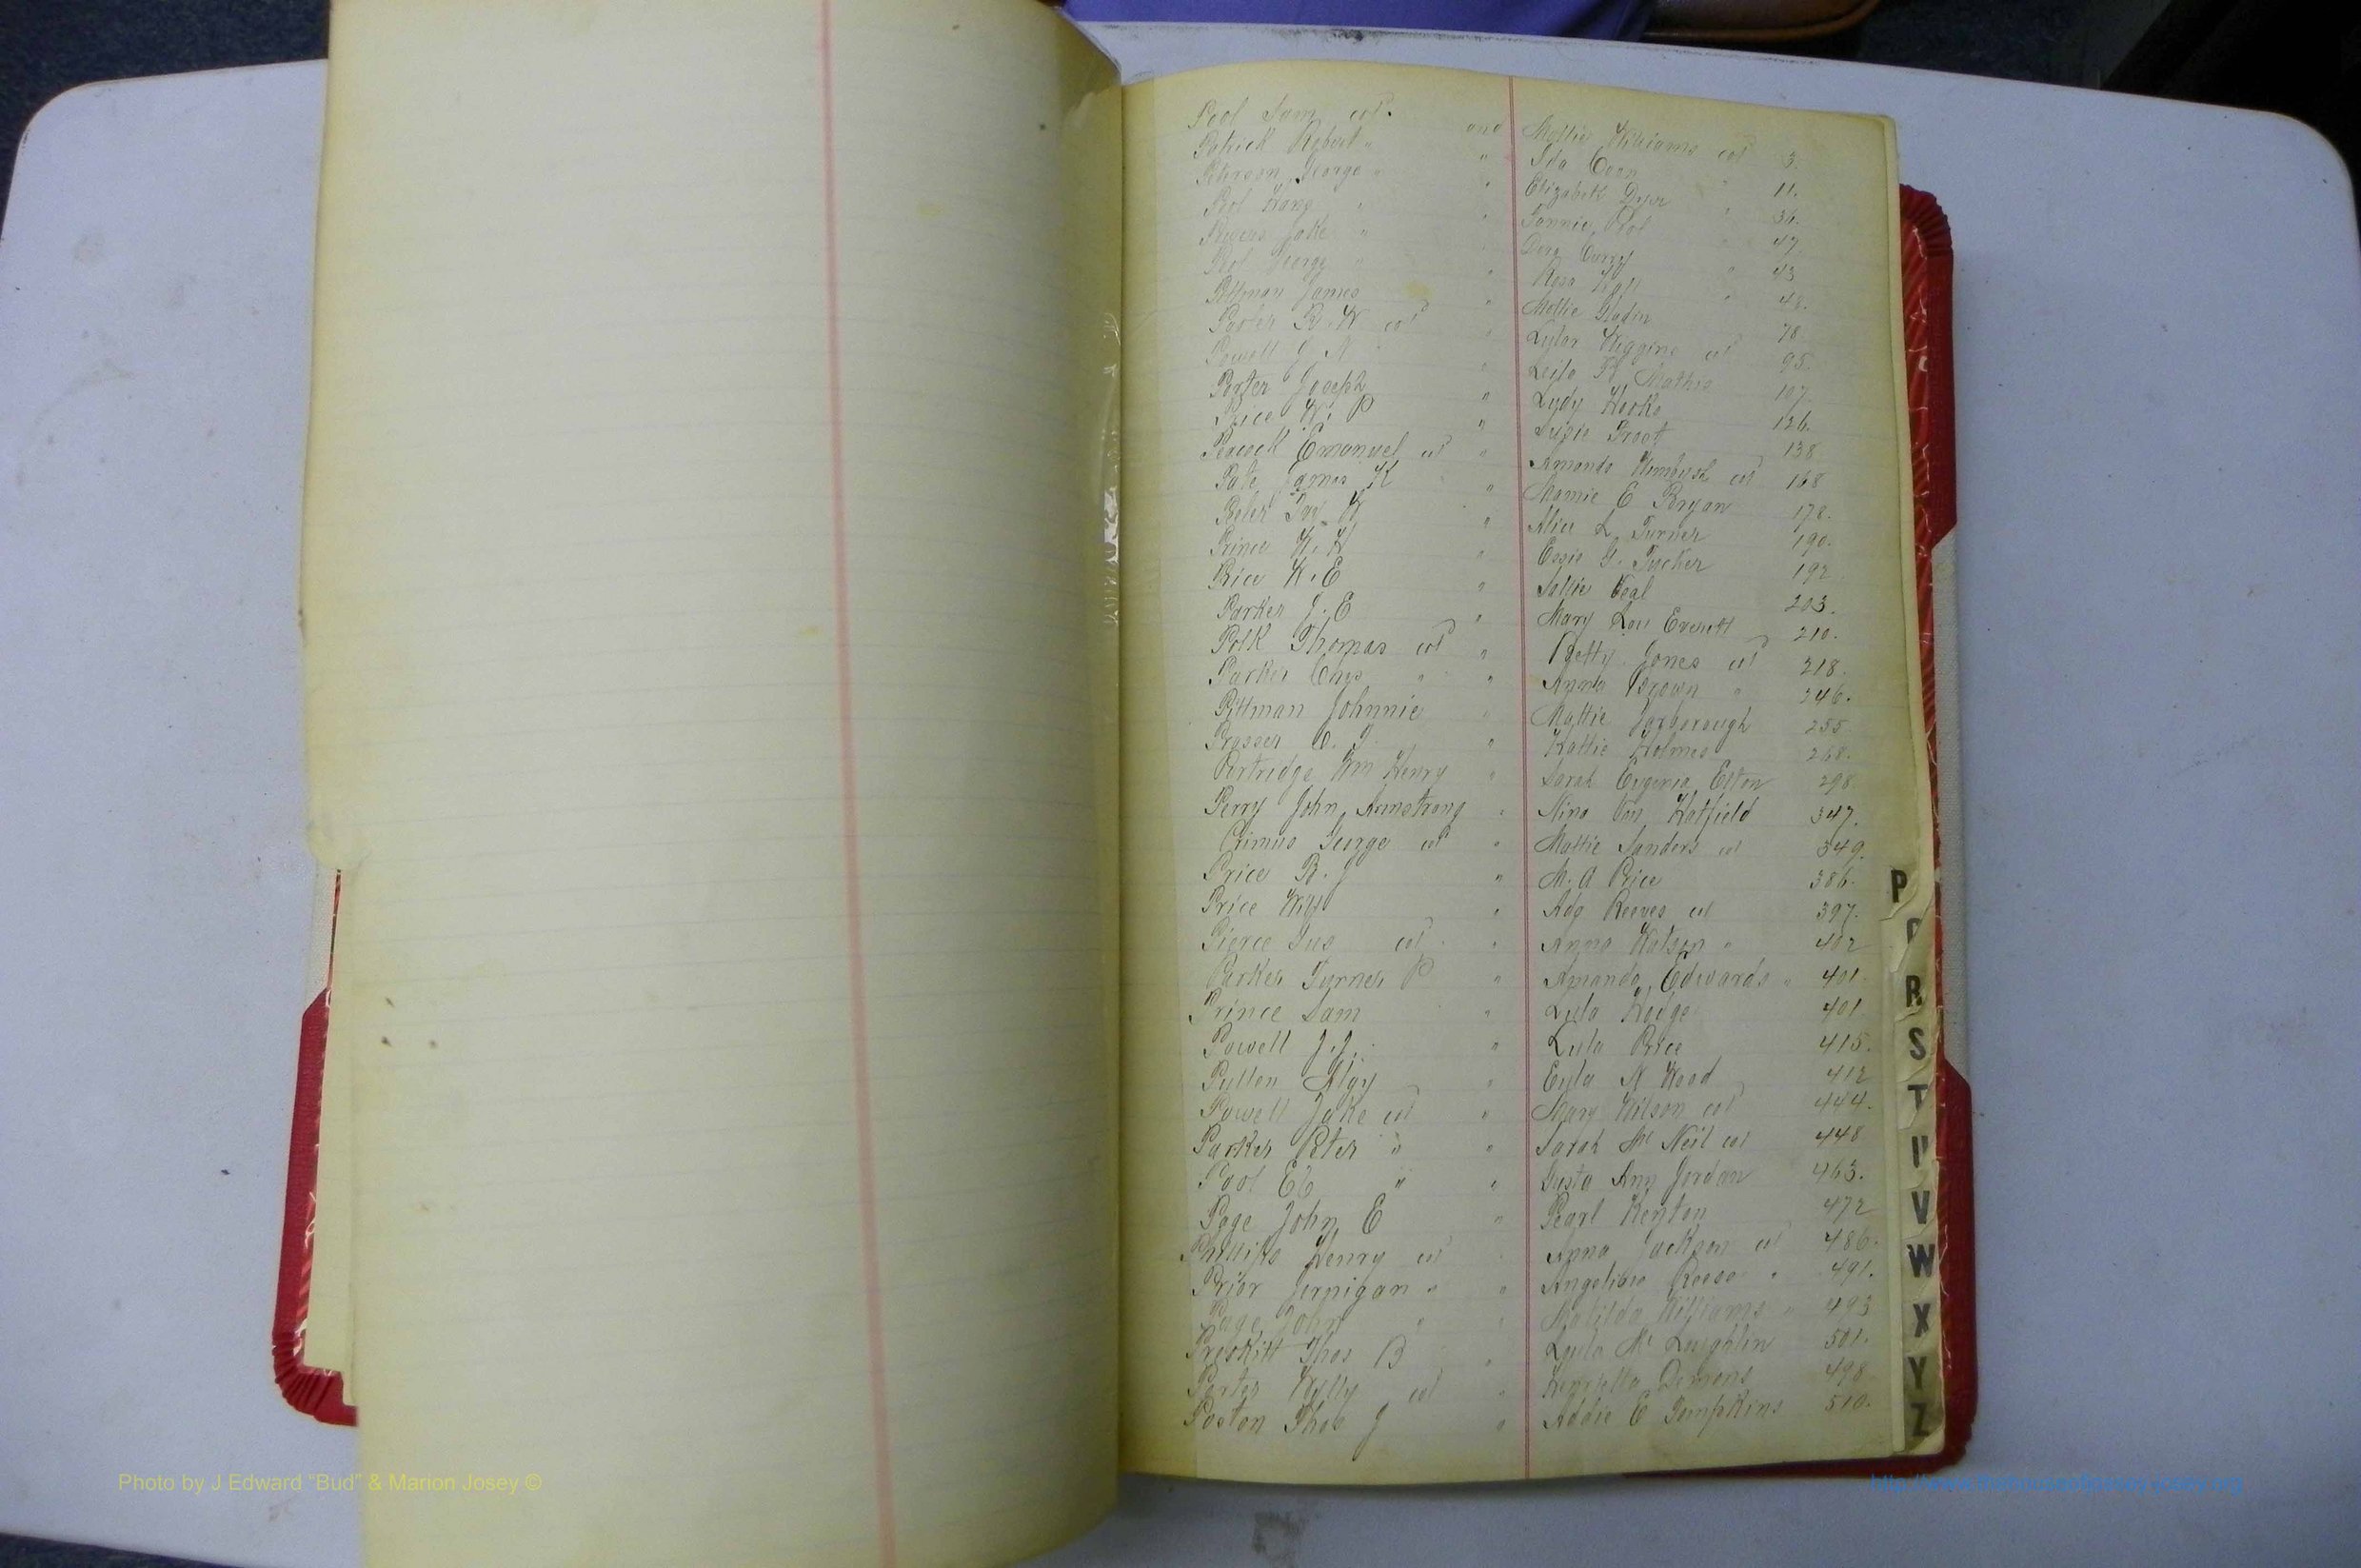 Pool Sam col. and Mollie Williams col 3.
Patrick Robert " " Ida Coon " 11.
Peterson George " " Elizabeth Dyer " 31.
Pool " " Fannie Pool " 47.
Jake " " Curry " 43
Pool George " " Rosa Hall " 48.
Pittman James " Mollie Gladin 78.
Porter R. W. col " Wiggins col 95.
Powell J. N. " Leila Mathis 107.
Porter Joseph " Lydy Hooks 126.
Price W. P " Susie Frost 138
Peacock Emanuel col " Amanda col 168
Pate James K " Mamie E Bryan 178.
W " Alice L. Turner 190.
Prince W. H " Essie G. Tucker 192
Price W. E " Sallie Veal 203.
Parker J. E " Mary Lou Everett 210.
Polk Thomas col " Betty Jones col 218.
Parker Chas " " Anna Brown " 246.
Pittman Johnnie " Mattie Yarborough 255
Prosser " Hattie Holmes 268.
Partridge Wm Henry " Sarah Eugenia Elton 298
Perry John Armstrong " Nina Hatfield 347.
Primus George col " Mattie Sanders col 349.
Price R. J " M. A Price 386.
Price Will " Ada Reeves col 397.
Pierce Gus col " Anna Watson " 402
Parker Turner P " Amanda Edwards " 401.
Prince Sam " Lula Hodge 401
Powell J. J. " Lula Price 415.
Pullen " Eula N Wood 412
Powell Jake col " Mary Wilson col 444.
Parker Peter " " Sarah McNeil col 448
Pool Eb " " Gusta Ann Jordan 463.
Page John E " Pearl Kenton 472
Phillips Henry col " Anna Jackson col 486.
Prior Jernigan " " Angeline Reese " 491.
Page John " " Matilda Williams " 493
Preskitt Thos B " Lula McLaughlin 501.
Porter Willy col " Henrietta Demons 498
Poston Thos J " Addie E Tompkins 510.
P
R
S
T
U
V
W
X
Y
Z
Photo by J Edward “Bud” & Marion Josey ©